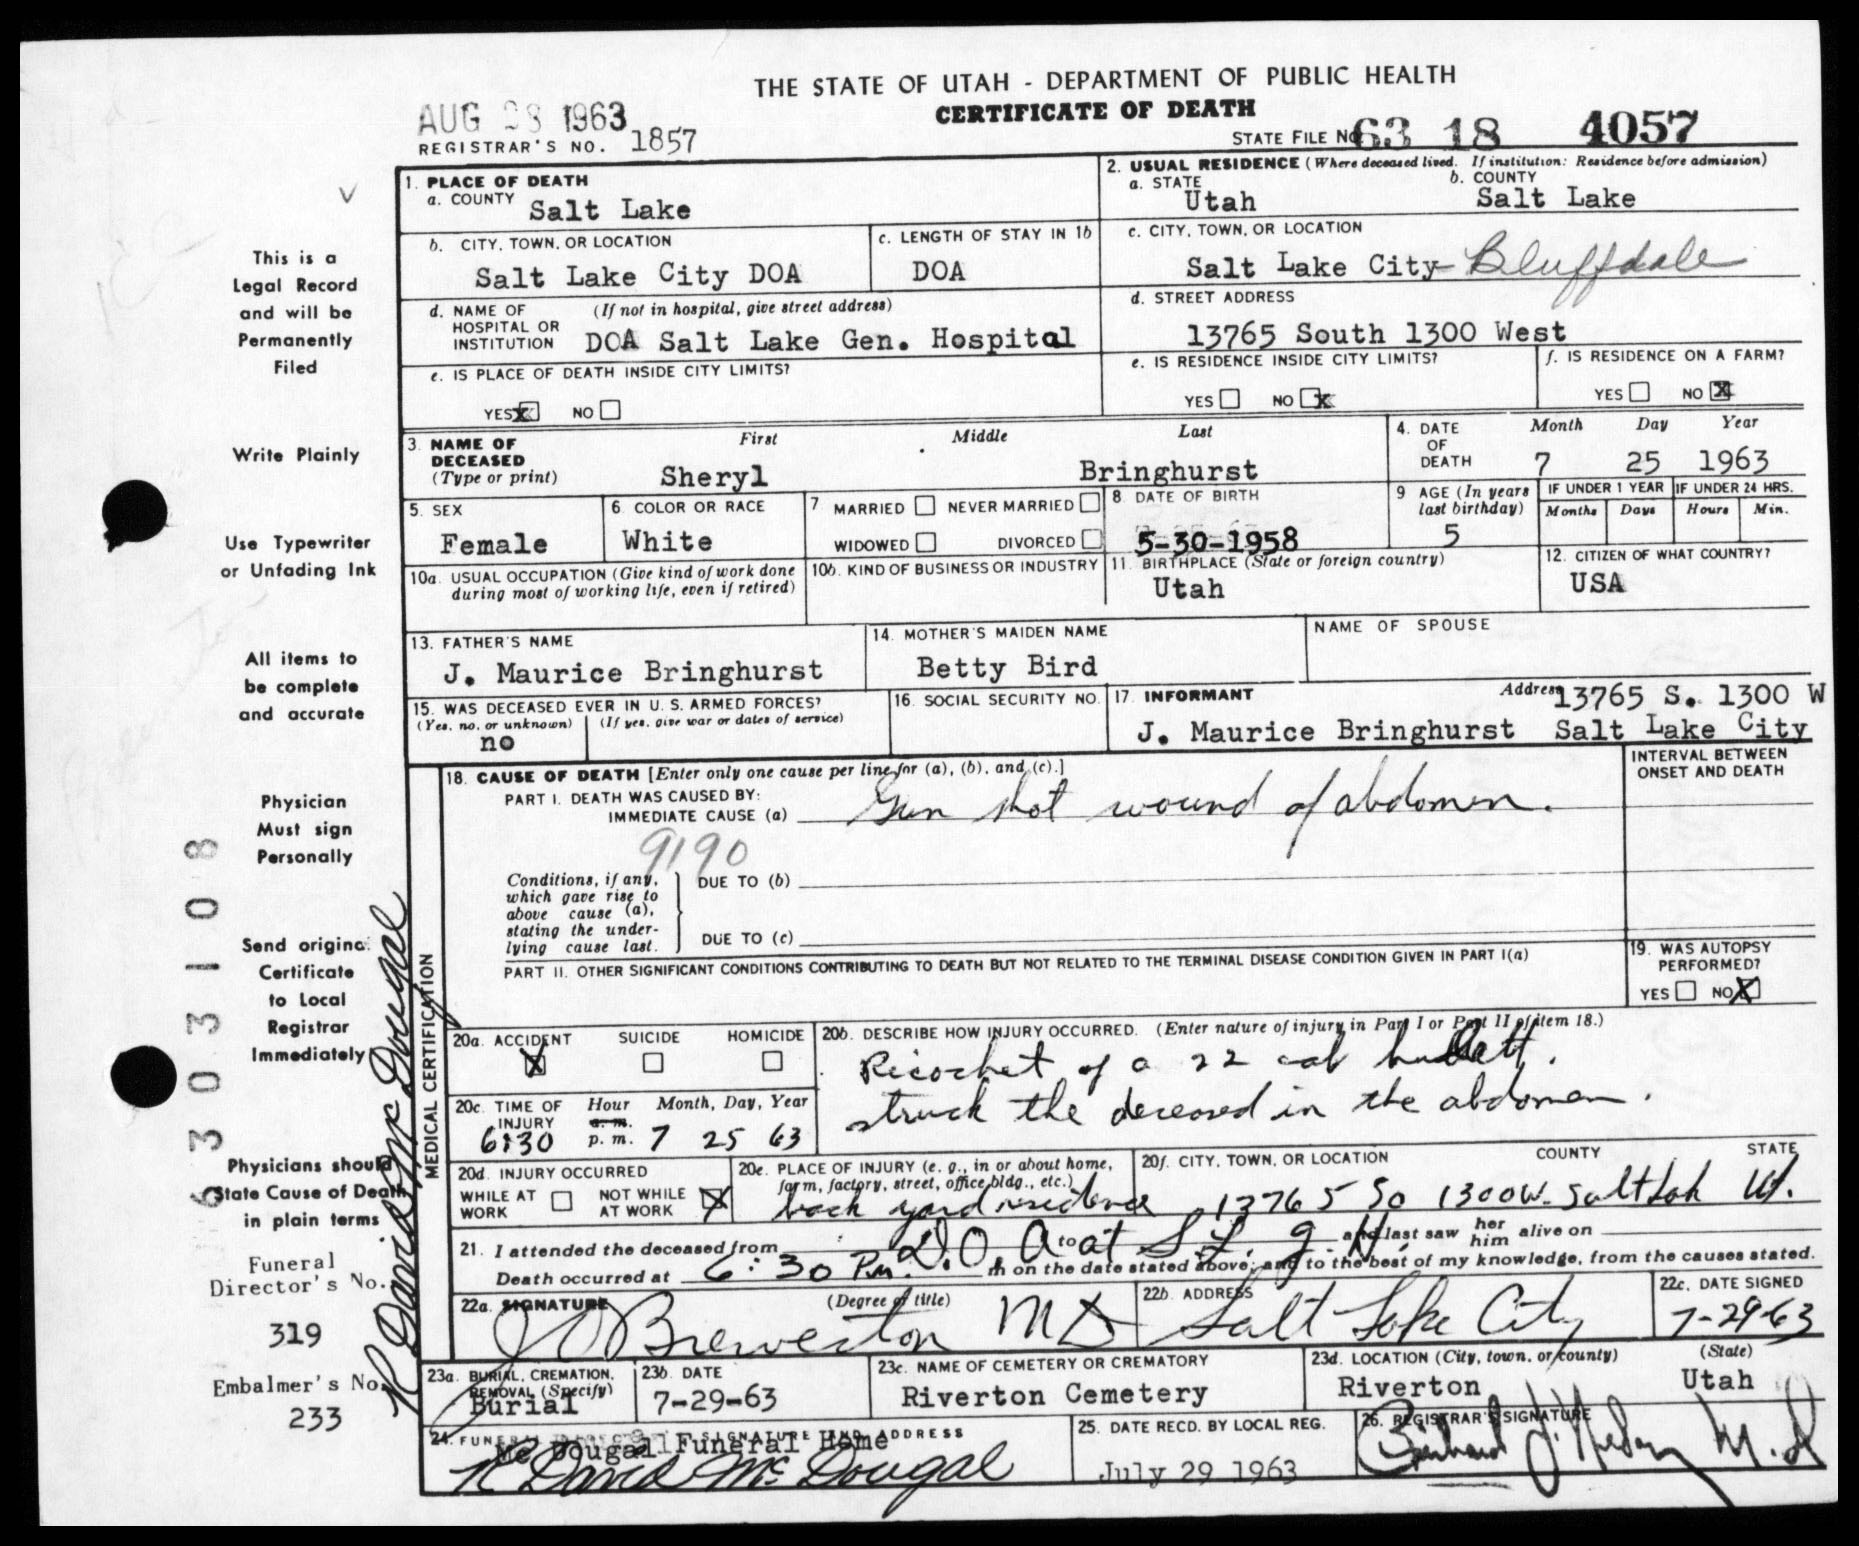 THE STATE OF UTAH - DEPARTMENT OF PUBLIC HEALTH
CERTIFICATE OF DEATH
AUG 1963
REGISTRAR'S NO. 1857
STATE FILE No. 63 18 4057
This is a
Legal Record
and will be
Permanently
Filed
Write Plainly
Use Typewriter
or Unfading Ink
All items to
be complete
and accurate
Physician
Must sign
Personally
Send original
Certificate
to Local
Registrar
Immediately
Physicians should
State Cause of Death
in plain terms
Funeral
Director's No.
319
Embalmer's No.
233
6303108
R David McDougal
1. PLACE OF DEATH
a. COUNTY Salt Lake
2. USUAL RESIDENCE (Where deceased lived. If institution: Residence before admission)
a. STATE Utah
b. COUNTY Salt Lake
b. CITY, TOWN, OR LOCATION
Salt Lake City DOA
c. LENGTH OF STAY IN 1b
DOA
c. CITY, TOWN, OR LOCATION
Salt Lake City - Bluffdale
d. NAME OF HOSPITAL OR INSTITUTION (If not in hospital, give street address)
DOA Salt Lake Gen. Hospital
d. STREET ADDRESS
13765 South 1300 West
e. IS PLACE OF DEATH INSIDE CITY LIMITS?
YES X NO
e. IS RESIDENCE INSIDE CITY LIMITS?
YES NO X
f. IS RESIDENCE ON A FARM?
YES NO X
3. NAME OF DECEASED (Type or print)
First Middle Last
Sheryl Bringhurst
4. DATE OF DEATH
Month Day Year
7 25 1963
5. SEX
Female
6. COLOR OR RACE
White
7 MARRIED NEVER MARRIED
WIDOWED DIVORCED
8 DATE OF BIRTH
5-30-1958
9 AGE (In years last birthday)
5
IF UNDER 1 YEAR
Months Days
IF UNDER 24 HRS.
Hours Min.
10a. USUAL OCCUPATION (Give kind of work done during most of working life, even if retired)
10b. KIND OF BUSINESS OR INDUSTRY
11. BIRTHPLACE (State or foreign country)
Utah
12. CITIZEN OF WHAT COUNTRY?
USA
13. FATHER'S NAME
J. Maurice Bringhurst
14. MOTHER'S MAIDEN NAME
Betty Bird
NAME OF SPOUSE
15. WAS DECEASED EVER IN U. S. ARMED FORCES?
(Yes, no, or unknown) (If yes, give war or dates of service)
no
16. SOCIAL SECURITY NO.
17. INFORMANT
J. Maurice Bringhurst
Address 13765 S. 1300 W
Salt Lake City
MEDICAL CERTIFICATION
18. CAUSE OF DEATH [Enter only one cause per line for (a), (b), and (c).]
INTERVAL BETWEEN ONSET AND DEATH
PART I. DEATH WAS CAUSED BY:
IMMEDIATE CAUSE (a) Gun shot wound of abdomen.
9190
Conditions, if any, which gave rise to above cause (a), stating the underlying cause last.
DUE TO (b)
DUE TO (c)
PART II. OTHER SIGNIFICANT CONDITIONS CONTRIBUTING TO DEATH BUT NOT RELATED TO THE TERMINAL DISEASE CONDITION GIVEN IN PART I(a)
19. WAS AUTOPSY PERFORMED?
YES NO X
20a. ACCIDENT SUICIDE HOMICIDE
X
20b. DESCRIBE HOW INJURY OCCURRED. (Enter nature of injury in Part I or Part II of item 18.)
Ricochet of a 22 cal bullett.
struck the deceased in the abdomen.
20c. TIME OF INJURY
Hour Month, Day, Year
a. m.
6:30 p. m. 7 25 63
20d. INJURY OCCURRED
WHILE AT WORK NOT WHILE AT WORK X
20e. PLACE OF INJURY (e. g., in or about home, farm, factory, street, office bldg., etc.)
back yard residence
20f. CITY, TOWN, OR LOCATION COUNTY STATE
13765 So 1300 W. Salt Lak Ut.
21. I attended the deceased from D.O.A to at S. L. g. H. and last saw her him alive on
Death occurred at 6:30 P.m. m on the date stated above; and to the best of my knowledge, from the causes stated.
22a. SIGNATURE (Degree of title)
J O Brewerton MD
22b. ADDRESS
Salt Lake City
22c. DATE SIGNED
7-29-63
23a. BURIAL, CREMATION, REMOVAL (Specify)
Burial
23b. DATE
7-29-63
23c. NAME OF CEMETERY OR CREMATORY
Riverton Cemetery
23d. LOCATION (City, town, or county) (State)
Riverton Utah
24. FUNERAL DIRECTOR'S SIGNATURE AND ADDRESS
Mc Dougal Funeral Home
R David McDougal
25. DATE RECD. BY LOCAL REG.
July 29 1963
26. REGISTRAR'S SIGNATURE
M.D